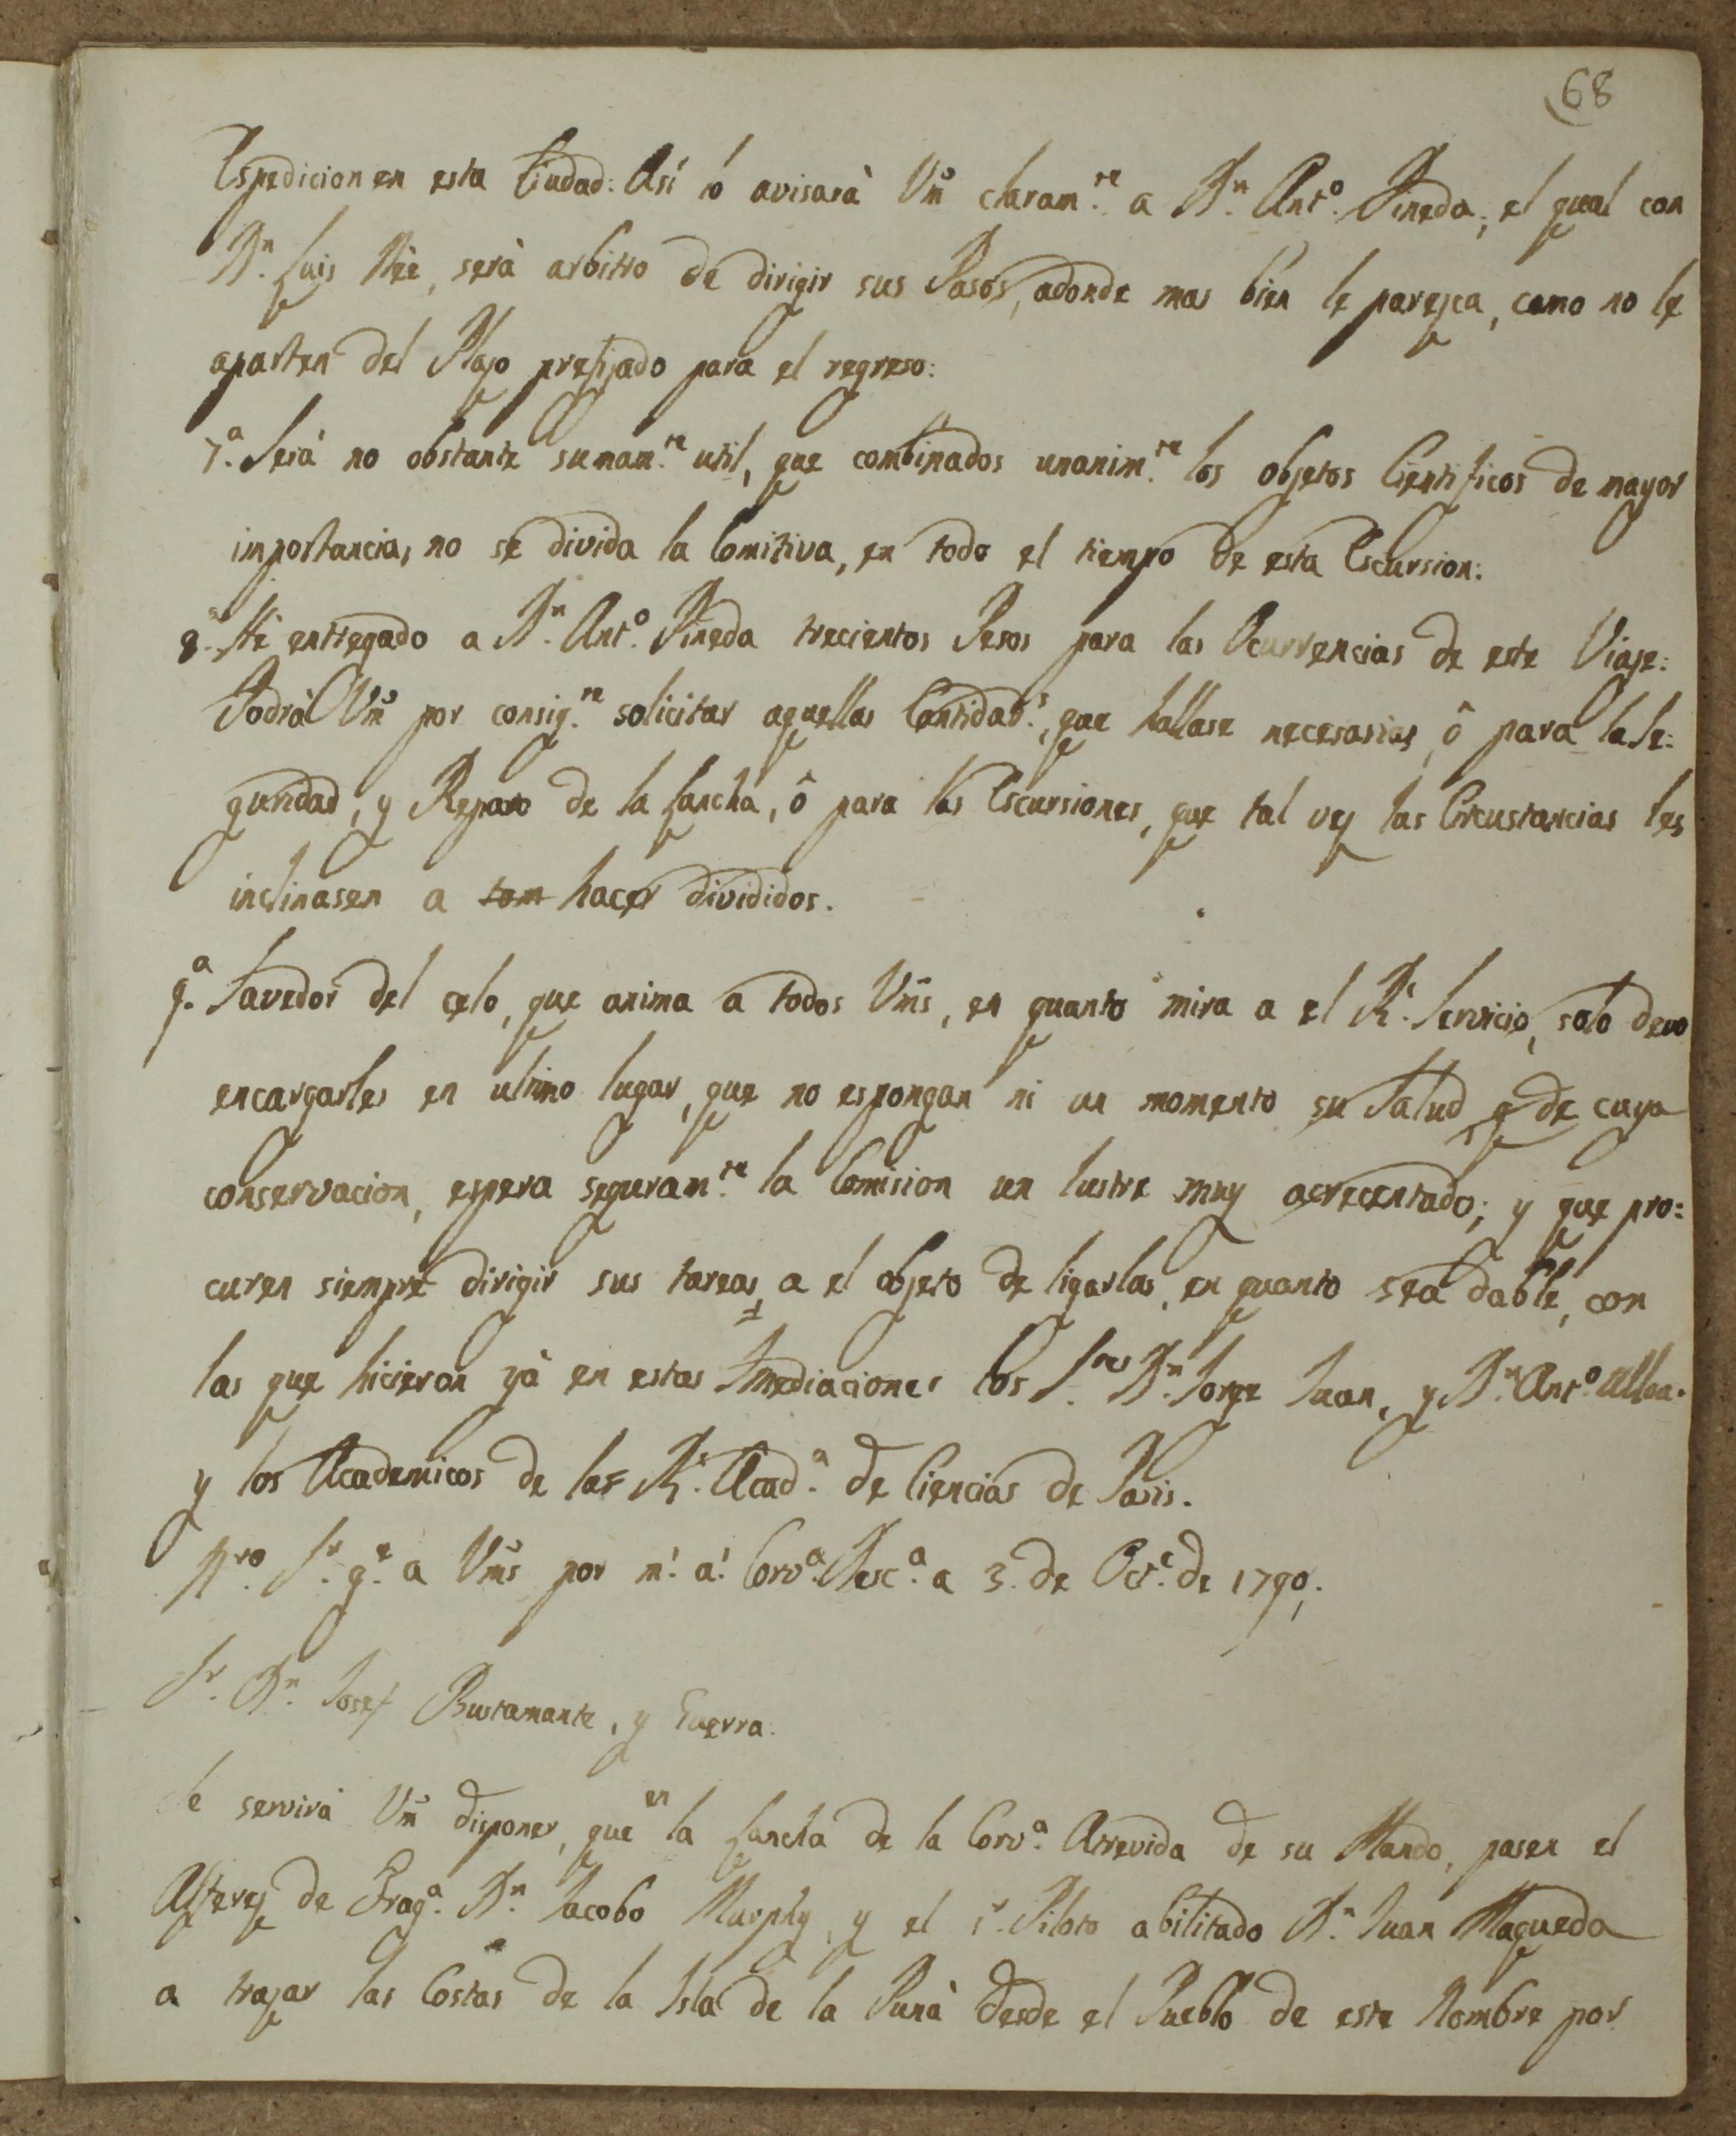 68
Espedicion en esta Ciudad: Así lo avisarà Vm̃ claram.te a D.n Ant.o Pineda; el qual con
D.n Luis Nèe, serà arbitro de dirigir sus Pasos, adonde mas bien le paresca, como no le
aparten del Plazo prefijado para el regreso:
7.a Serà no obstante sumam.te util, que combinados unanim.te los objetos Cientificos de mayor
importancia, no se divida la Comitiva, en todo el tiempo de esta Escursion:
8.a Hè entregado a D.n Ant.o Pineda trecientos Pesos para las Ocurrencias de este Viaje:
Podrà Vm̃ por consig.te solicitar aquellas Cantidad.s, que hallase necesarias, ô para la Se:
guridad, y Reparo de la Lancha, ô para las Escursiones, que tal vez las Circustancias les
inclinasen a tom hacer divididos.
9.a Savedor del celo, que anima a todos Vm̃s, en quanto mira a el R.l Servicio, solo devo
encargarles en ultimo lugar, que no espongan ni un momento su Salud, de cuya
conservacion, espera seguram.te la Comision un lustre muy acrecentado; y que pro:
curen siempre dirigir sus tareas, a el objeto de ligarlas, en quanto sea dable, con
las que hicieron yà en estas Imediaciones los S.res D.n Jorge Juan, y D.n Ant.o Ulloa.
y los Academicos de la R.l Acad.a de Ciencias de Paris.
N.ro S.r g.e a Vm̃s por m.s a.s Corv.a Desc.a a 3. de Oct.e de 1790,.
S.r D.n Josef Bustamante, y Guerra.
Se servirà Vm̃ disponer, que en la Lancha de la Corv.a Atrevida de su Mando, pasen el
Alferez de Frag.a D.n Jacobo Murphy, y el 1.r Piloto abilitado D.n Juan Maqueda
a trazar las Costas de la Isla de la Punà desde el Pueblo de este Nombre por